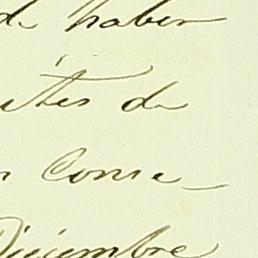 de haber
ites de
Conse_
Diciembre